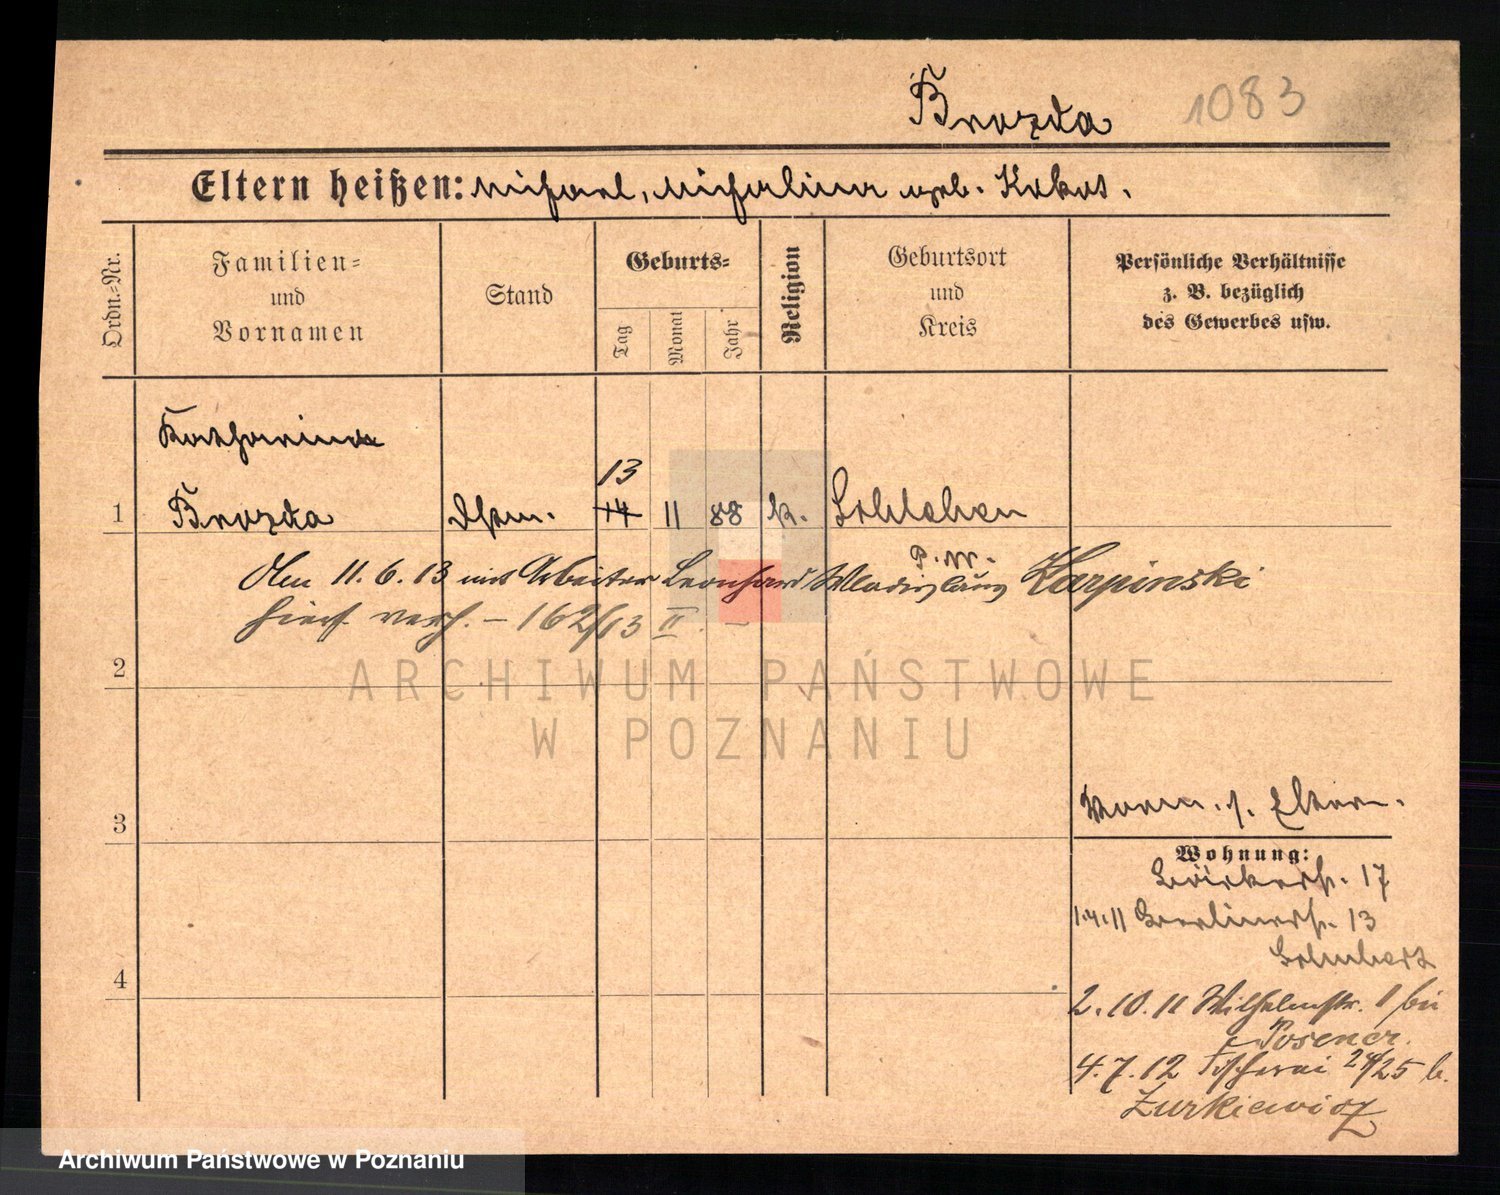 Brozda 1083
Eltern heißen: Michael, Michalina geb. Kokot.
Ordn.=Nr.
Familien=
und
Vornamen
Stand
Geburts=
Tag
Monat
Jahr
Religion
Geburtsort
und
Kreis
Persönliche Verhältnisse
z. B. bezüglich
des Gewerbes usw.
Katharina
13
1 Brozda 14 11 88 k.
P. W.
Am 11.6.13 mit Arbeiter Leonhard Wladislaus Karpinski
hier verh. – 162/13 II. –
2
3
4
Eltern.
Wohnung:
17
1.4.11 Berlinerstr. 13
Schubert
2.10.11 Wilhelmstr. 1 bei
Posener.
4.7.12 Fischerei 24/25 b.
Żurkiewicz
ARCHIWUM PAŃSTWOWE
W POZNANIU
Archiwum Państwowe w Poznaniu